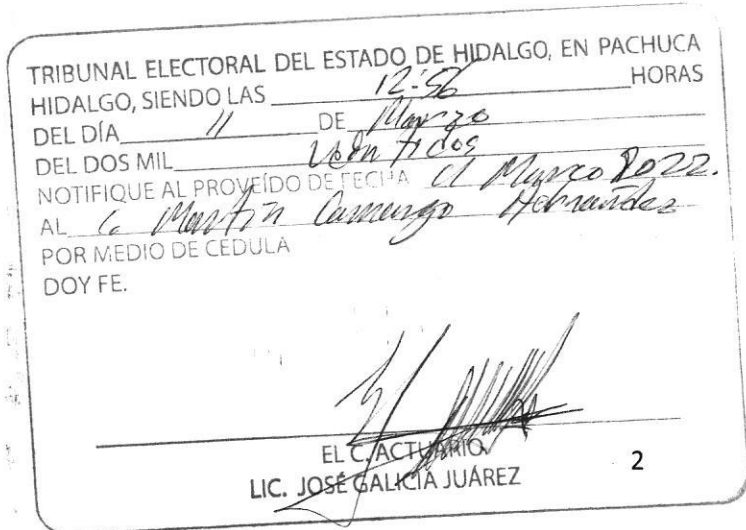 TRIBUNAL ELECTORAL DEL ESTADO DE HIDALGO, EN PACHUCA
HIDALGO, SIENDO LAS 12:56 HORAS
DEL DÍA 11 DE Marzo
DEL DOS MIL Veintidos
NOTIFIQUE AL PROVEÍDO DE FECHA 11 Marzo 2022.
AL C. Martin Camargo Hernández
POR MEDIO DE CEDULA
DOY FE.
EL C. ACTUARIO.
LIC. JOSÉ GALICIA JUÁREZ
2